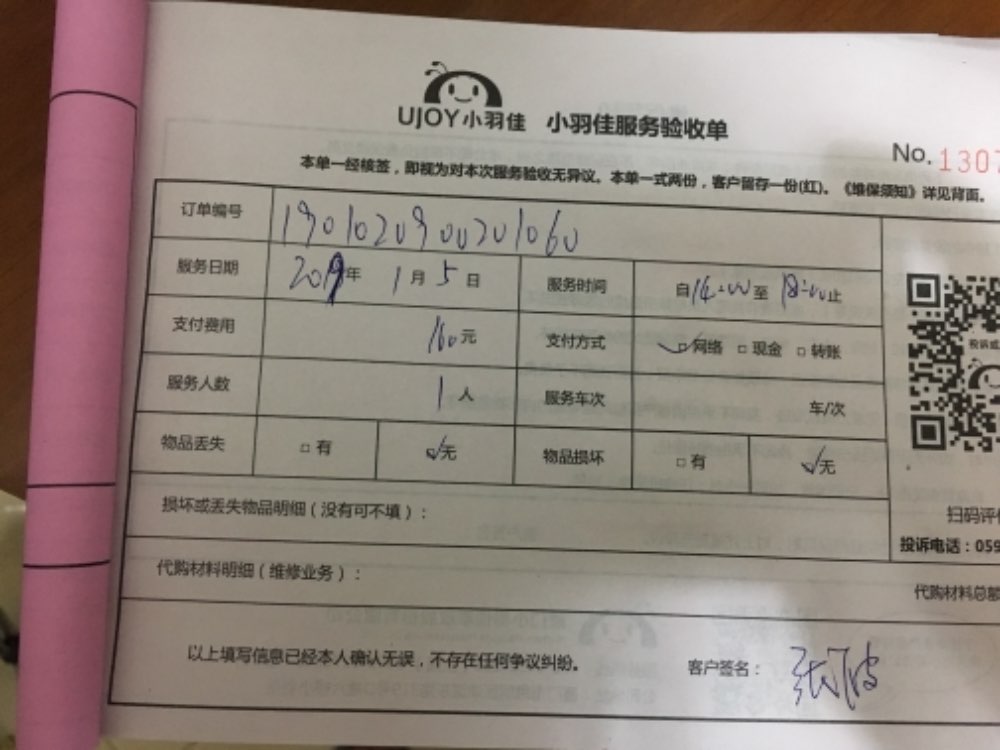 UJOY小羽佳 小羽佳服务验收单
No. 1307
本单一经核签，即视为对本次服务验收无异议。本单一式两份，客户留存一份(红)。《维保须知》详见背面。
订单编号 1901020900201060
服务日期 2019年 1月 5日 服务时间 自14:00至18:00止
支付费用 160元 支付方式 □网络 □现金 □转账
服务人数 1人 服务车次 车/次
物品丢失 □有 □无 物品损坏 □有 □无
损坏或丢失物品明细（没有可不填）：
扫码评
投诉电话：059
代购材料明细（维修业务）：
代购材料总额
以上填写信息已经本人确认无误，不存在任何争议纠纷。 客户签名：